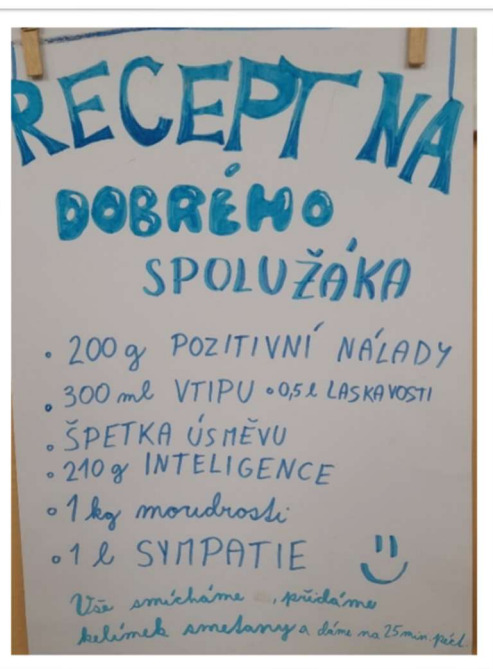 RECEPT NA
DOBRÉHO
SPOLUŽÁKA
• 200 g POZITIVNÍ NÁLADY
• 300 ml VTIPU • 0,5 l LASKAVOSTI
• ŠPETKA ÚSMĚVU
• 210 g INTELIGENCE
• 1 kg moudrosti
• 1 l SYMPATIE
Vše smícháme , přidáme
kelímek smetany a dáme na 25 min. péct.